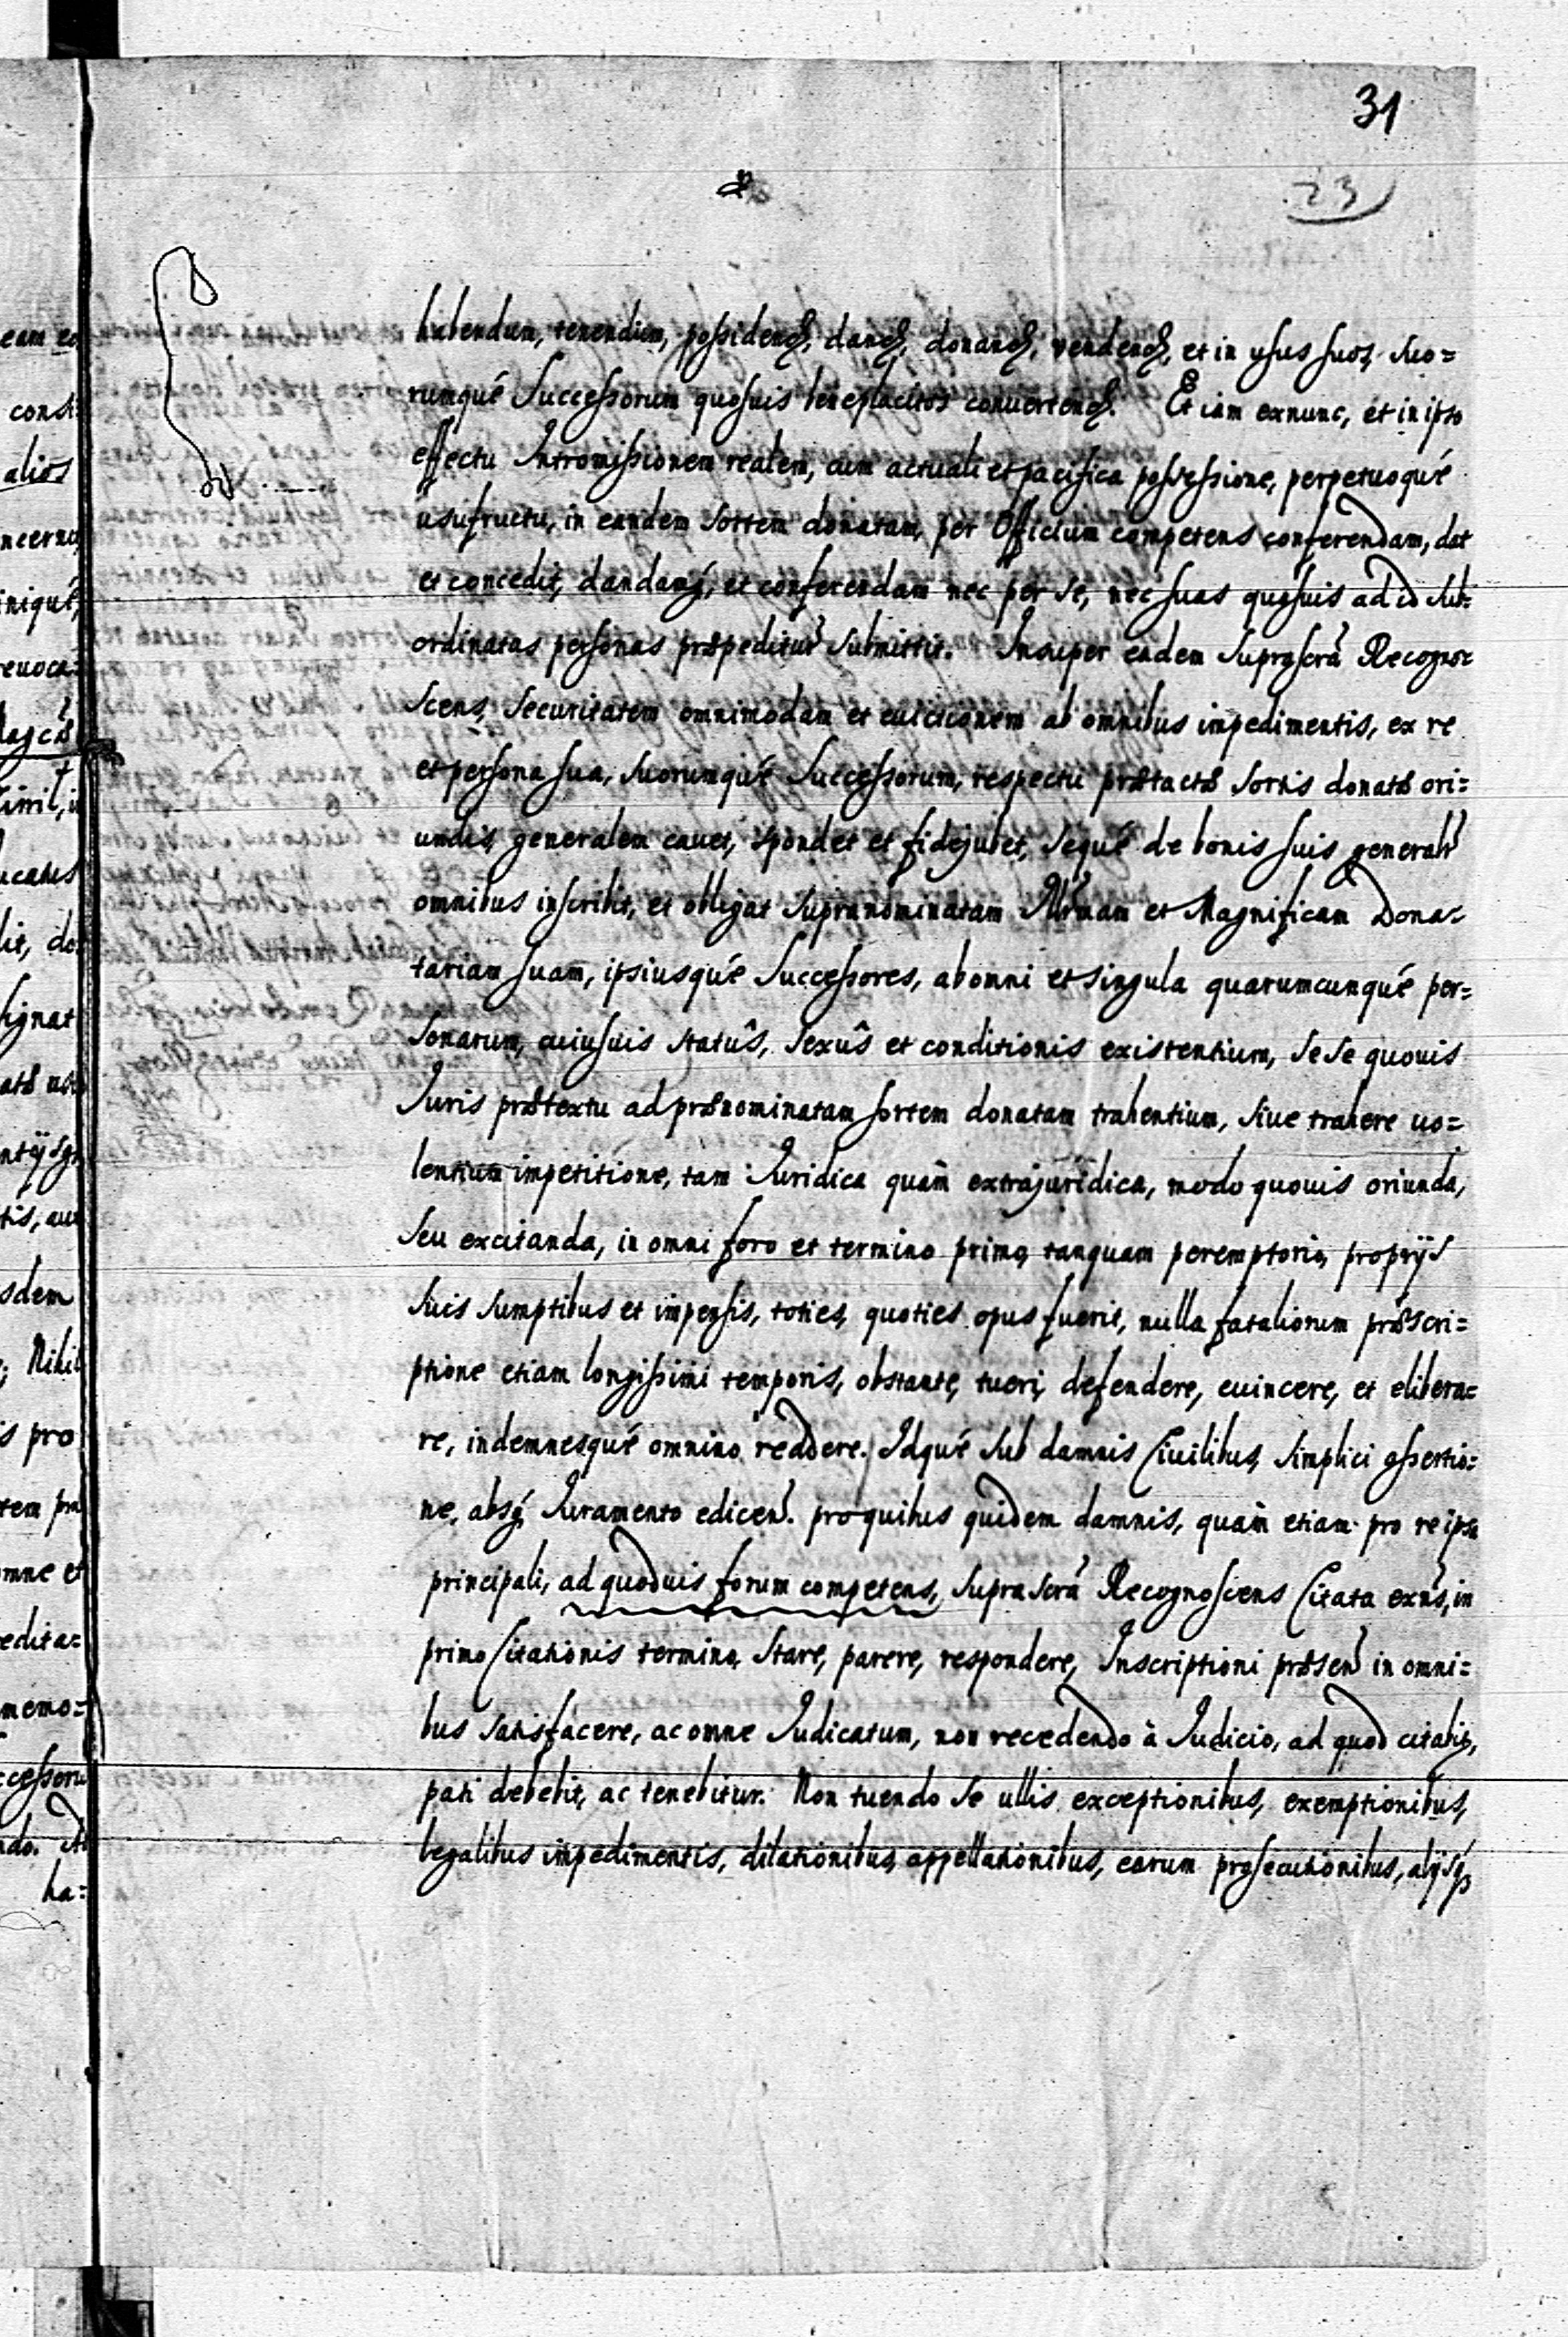 31
23
eam eo
const
alios
ncerne
inique,
revoca-
Magcæ
Civil, i
ucatus
lit, do-
signat
atæ us
ntijsq
tis, au
sdem
; Nihil
s pro
tem pr
omne et
edita=
memo=
ccessoru
ndo. At
ha=
habendum, tenendum, possidend, dand, donand, vendend, et in usus suos, suo=
rumqué Successorum quosuis beneplacitos convertend. Et iam exnunc, et in ipso
effectu Intromissionem realem, cum actuali et pacifica possessione, perpetuoqué
usufructu, in eandem Sortem donatam, per Officium competens conferendam, dat
et concedit, dandamq́, et conferendam nec per se, nec suas quosuis ad id sub-
ordinatas personas præpeditur submittit. Insuper eadem suprascrã Recogno=
scens, Securitatem omnimodam et euictionem ab omnibus impedimentis, ex re
et persona sua, suorumqué Successorum, respectu prætactæ Sortis donatæ ori=
undis, generalem cauet, spondet et fidejubet, Sequé de bonis suis generalr
omnibus inscribit, et obligat supranominatam Illrmam et Magnificam Dona=
tariam suam, ipsiusqué Successores, ab omni et singula quarumcunqué per=
sonarum, cuiusuis statûs, sexûs et conditionis existentium, sese quouis
Iuris prætextu ad prænominatam sortem donatam trahentium, siue trahere uo=
lentium impetitione, tam Iuridica quàm extrajuridica, modo quouis oriunda,
seu excitanda, in omni foro et termino primo, tanquam peremptorio, proprijs
suis sumptibus et impensis, toties, quoties opus fuerit, nulla fataliorum præscri=
ptione etiam longissimi temporis, obstante, tueri, defendere, euincere, et elibera=
re, indemnesqué omnino reddere. Idqué sub damnis Ciuilibus, simplici assertio=
ne, absq́ Iuramento edicen. pro quibus quidem damnis, quàm etiam pro re ipsa
principali, ad quoduis forum competens, suprascrã Recognoscens Citata exns, in
primo Citationis termino, Stare, parere, respondere, Inscriptioni præsen in omni=
bus satisfacere, ac omne Iudicatum, non recedendo à Iudicio, ad quod citabit,
pati debebit, ac tenebitur. Non tuendo se ullis exceptionibus, exemptionibus,
legalibus impedimentis, dilationibus, appellationibus, earum prosecutionibus, alijsq́